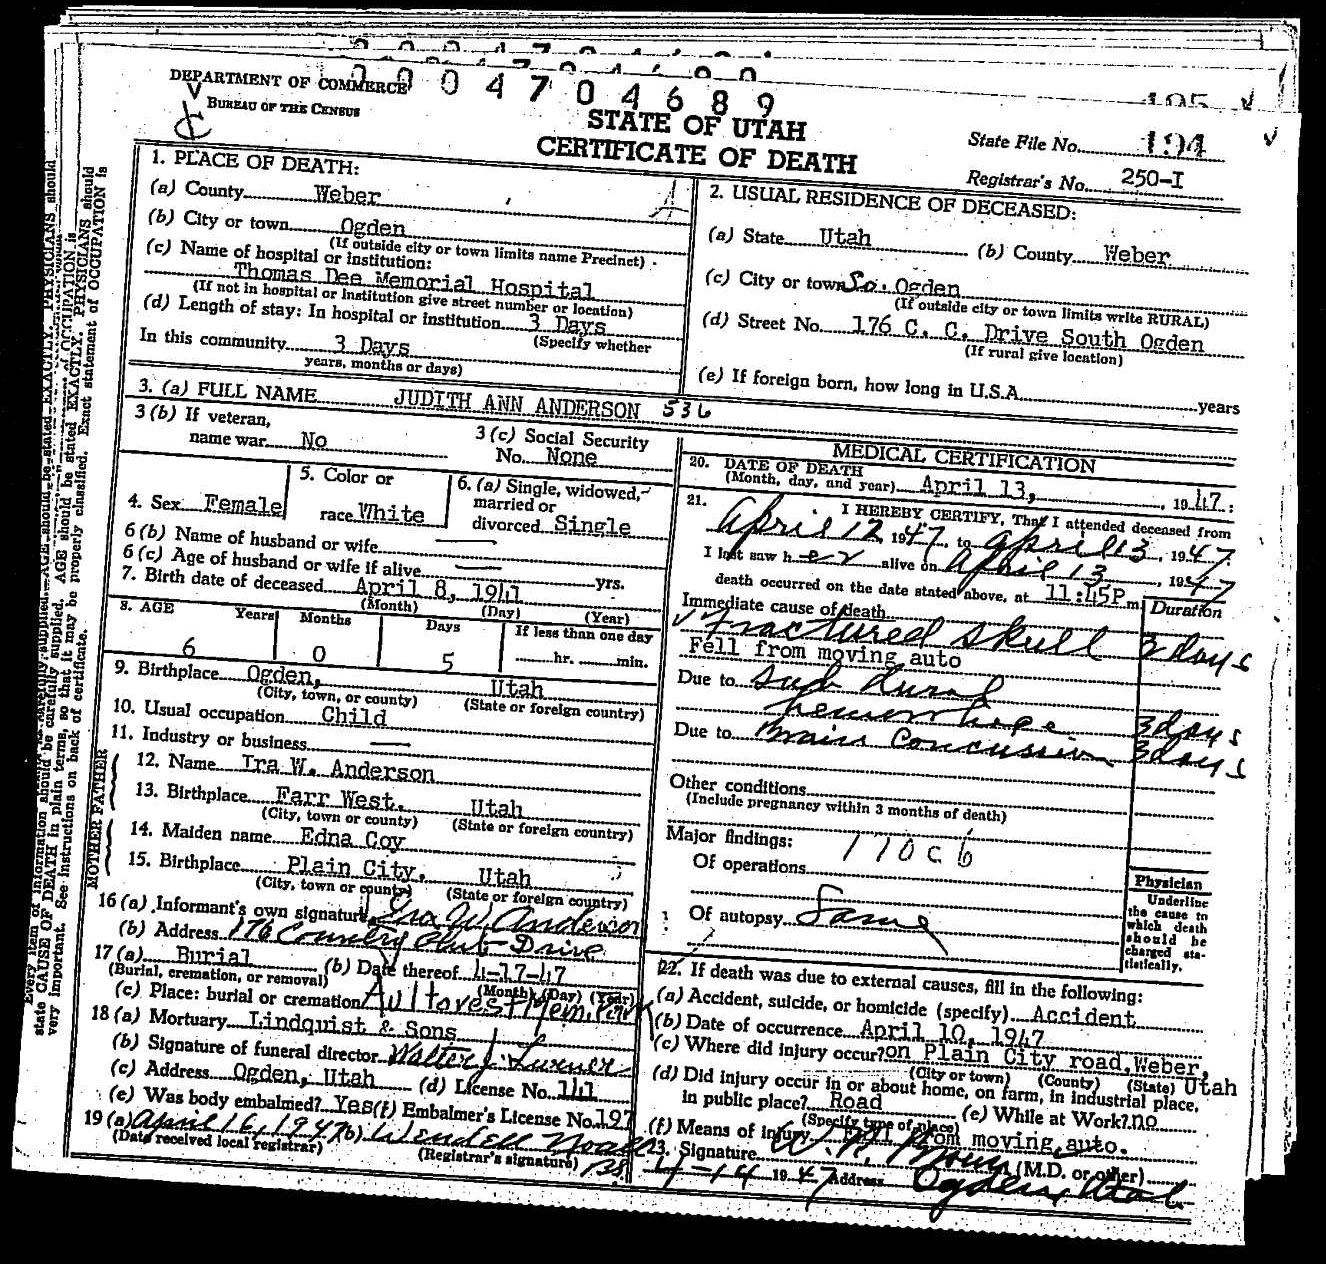 0 0 0 4 7 0 4 6 8 9
DEPARTMENT OF COMMERCE
BUREAU OF THE CENSUS
STATE OF UTAH
CERTIFICATE OF DEATH
195
State File No. 194
Registrar's No. 250-I
1. PLACE OF DEATH:
(a) County Weber
(b) City or town Ogden
(If outside city or town limits name Precinct)
(c) Name of hospital or institution:
Thomas Dee Memorial Hospital
(If not in hospital or institution give street number or location)
(d) Length of stay: In hospital or institution 3 Days
(Specify whether
In this community 3 Days
years, months or days)
2. USUAL RESIDENCE OF DECEASED:
(a) State Utah (b) County Weber
(c) City or town So. Ogden
(If outside city or town limits write RURAL)
(d) Street No. 176 C. C. Drive South Ogden
(If rural give location)
(e) If foreign born, how long in U.S.A. years
3. (a) FULL NAME JUDITH ANN ANDERSON 536
3 (b) If veteran,
name war No
3 (c) Social Security
No. None
4. Sex Female
5. Color or
race White
6. (a) Single, widowed,
married or
divorced Single
6 (b) Name of husband or wife
6 (c) Age of husband or wife if alive yrs.
7. Birth date of deceased April 8, 1941
(Month) (Day) (Year)
8. AGE Years Months Days If less than one day
6 0 5 hr. min.
9. Birthplace Ogden, Utah
(City, town, or county) (State or foreign country)
10. Usual occupation Child
11. Industry or business
FATHER
12. Name Ira W. Anderson
13. Birthplace Farr West, Utah
(City, town or county) (State or foreign country)
MOTHER
14. Maiden name Edna Coy
15. Birthplace Plain City, Utah
(City, town or county) (State or foreign country)
16 (a) Informant's own signature Ira W. Anderson
(b) Address 176 Country Club Drive
17 (a) Burial (b) Date thereof 4-17-47
(Burial, cremation, or removal) (Month) (Day) (Year)
(c) Place: burial or cremation Aultorest Mem. Park
18 (a) Mortuary Lindquist & Sons
(b) Signature of funeral director Walter J. Turner
(c) Address Ogden, Utah (d) License No. 141
(e) Was body embalmed? Yes (f) Embalmer's License No. 197
19 (a) April 16, 1947 (b) Wendell Noall
(Date received local registrar) (Registrar's signature)
MEDICAL CERTIFICATION
20. DATE OF DEATH
(Month, day, and year) April 13, 1947
21. I HEREBY CERTIFY, That I attended deceased from
April 12, 1947 to April 13, 1947.
I last saw her alive on April 13, 1947
death occurred on the date stated above, at 11:45P m
Immediate cause of death Duration
Fractured skull 3 days
Fell from moving auto
Due to Sub dural
hemorrhage 3 days
Due to Brain Concussion 3 days
Other conditions
(Include pregnancy within 3 months of death)
Major findings: 170c6
Of operations
Of autopsy Same
Physician
Underline
the cause to
which death
should be
charged sta-
tistically.
22. If death was due to external causes, fill in the following:
(a) Accident, suicide, or homicide (specify) Accident
(b) Date of occurrence April 10, 1947
(c) Where did injury occur? on Plain City road, Weber, Utah
(City or town) (County) (State)
(d) Did injury occur in or about home, on farm, in industrial place,
in public place? Road (e) While at Work? no
(Specify type of place)
(f) Means of injury from moving auto.
23. Signature (M.D. or other)
4-14 1947 Address Ogden, Utah
Every item of information should be carefully supplied. AGE should be stated EXACTLY. PHYSICIANS should
state CAUSE OF DEATH in plain terms, so that it may be properly classified. Exact statement of OCCUPATION is
very important. See instructions on back of certificate.